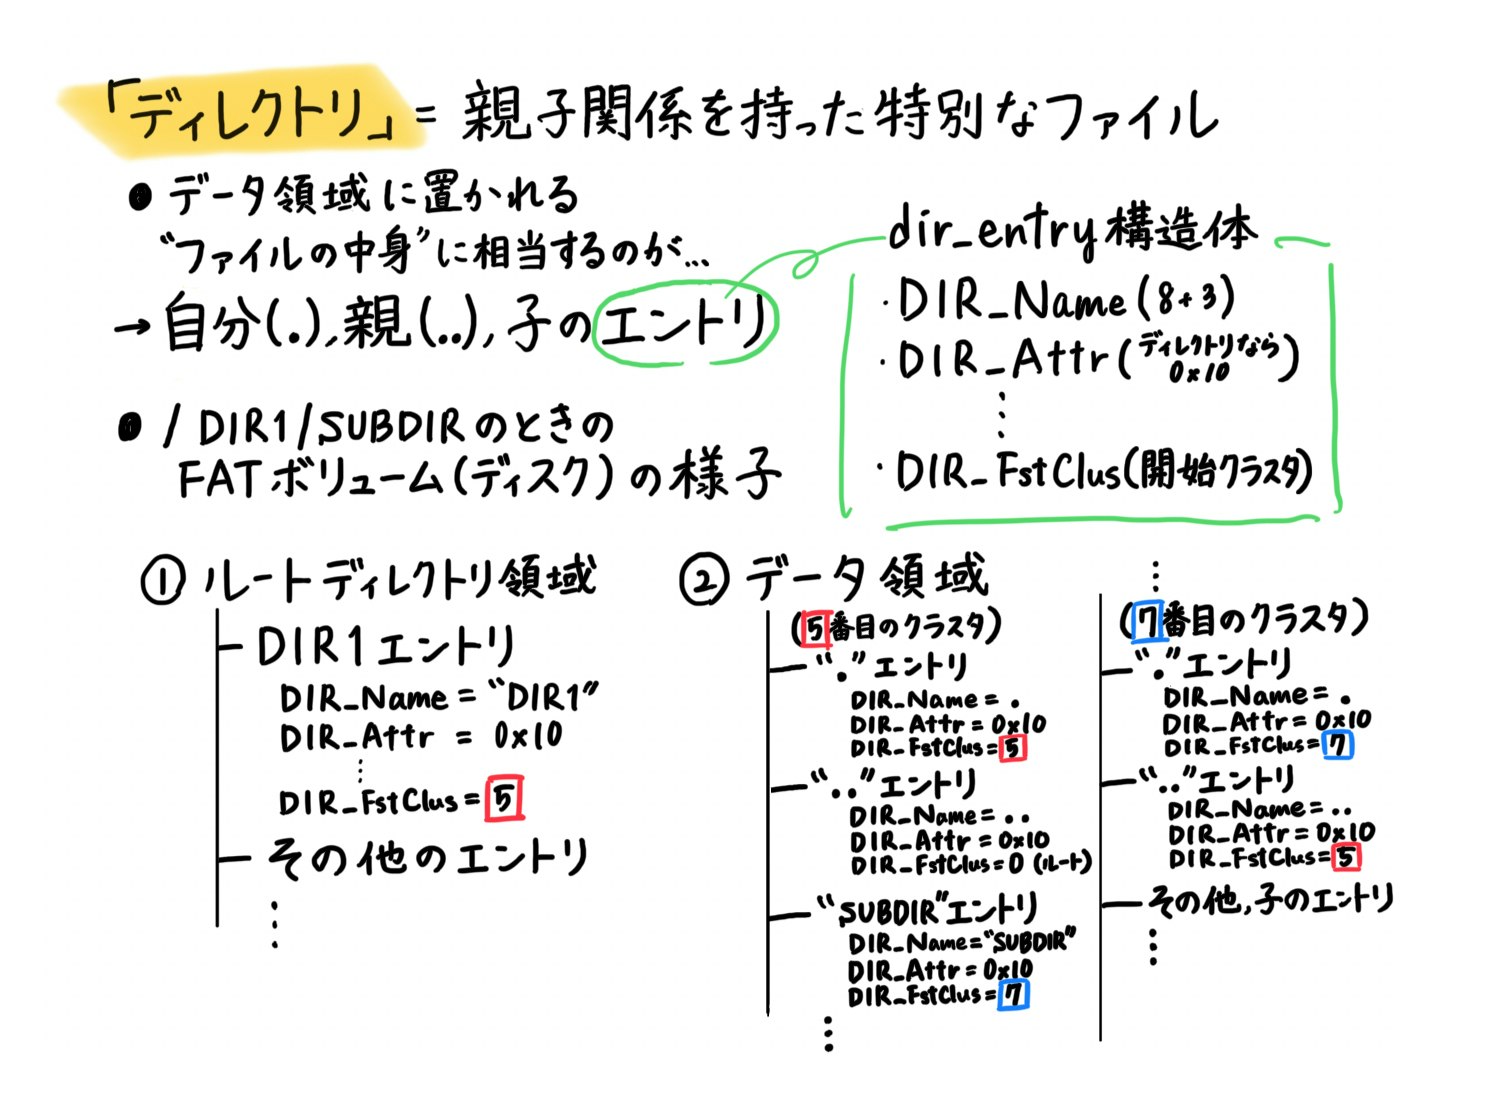 「ディレクトリ」= 親子関係を持った特別なファイル
● データ領域に置かれる
“ファイルの中身”に相当するのが…
→ 自分(.),親(..),子のエントリ
dir_entry構造体
・DIR_Name(8+3)
・DIR_Attr(ディレクトリなら
0x10)
⋮
・DIR_FstClus(開始クラスタ)
● /DIR1/SUBDIRのときの
FATボリューム(ディスク)の様子
① ルートディレクトリ領域
DIR1エントリ
DIR_Name = “DIR1”
DIR_Attr = 0x10
⋮
DIR_FstClus = 5
その他のエントリ
⋮
② データ領域
(5番目のクラスタ)
“.”エントリ
DIR_Name = .
DIR_Attr = 0x10
DIR_FstClus = 5
“..”エントリ
DIR_Name = ..
DIR_Attr = 0x10
DIR_FstClus = 0 (ルート)
“SUBDIR”エントリ
DIR_Name = “SUBDIR”
DIR_Attr = 0x10
DIR_FstClus = 7
⋮
⋮
(7番目のクラスタ)
“.”エントリ
DIR_Name = .
DIR_Attr = 0x10
DIR_FstClus = 7
“..”エントリ
DIR_Name = ..
DIR_Attr = 0x10
DIR_FstClus = 5
その他,子のエントリ
⋮